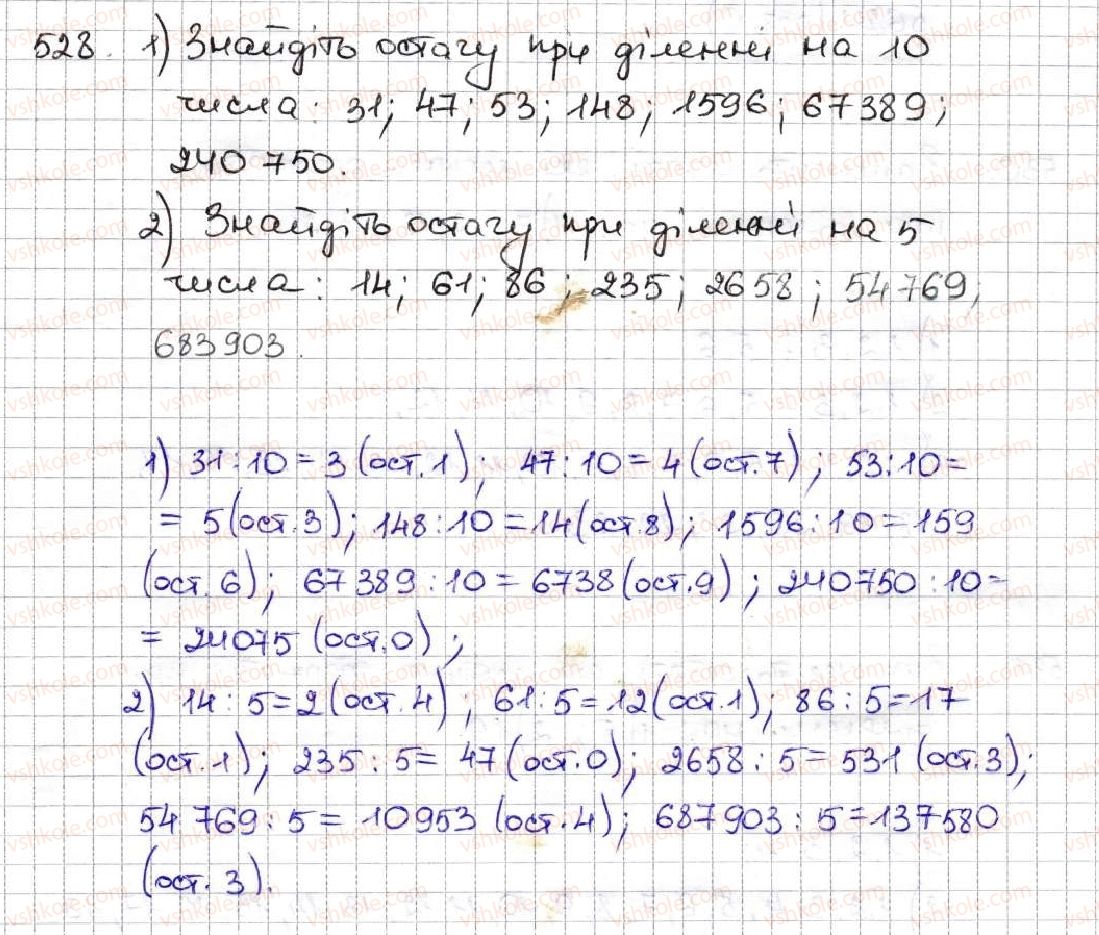 528. 1) Знайдіть остачу при діленні на 10
числа: 31; 47; 53; 148; 1596; 67389;
240 750.
2) Знайдіть остачу при діленні на 5
числа: 14; 61; 86; 235; 2658; 54769;
683903.
1) 31:10=3 (ост.1); 47:10=4(ост.7); 53:10=
= 5(ост.3); 148:10=14(ост.8); 1596:10=159
(ост.6); 67389:10=6738(ост.9); 240750:10=
= 24075 (ост.0);
2) 14:5=2(ост.4); 61:5=12(ост.1); 86:5=17
(ост.1); 235:5=47(ост.0); 2658:5=531(ост.3);
54 769:5=10953 (ост.4); 687903:5=137580
(ост.3).